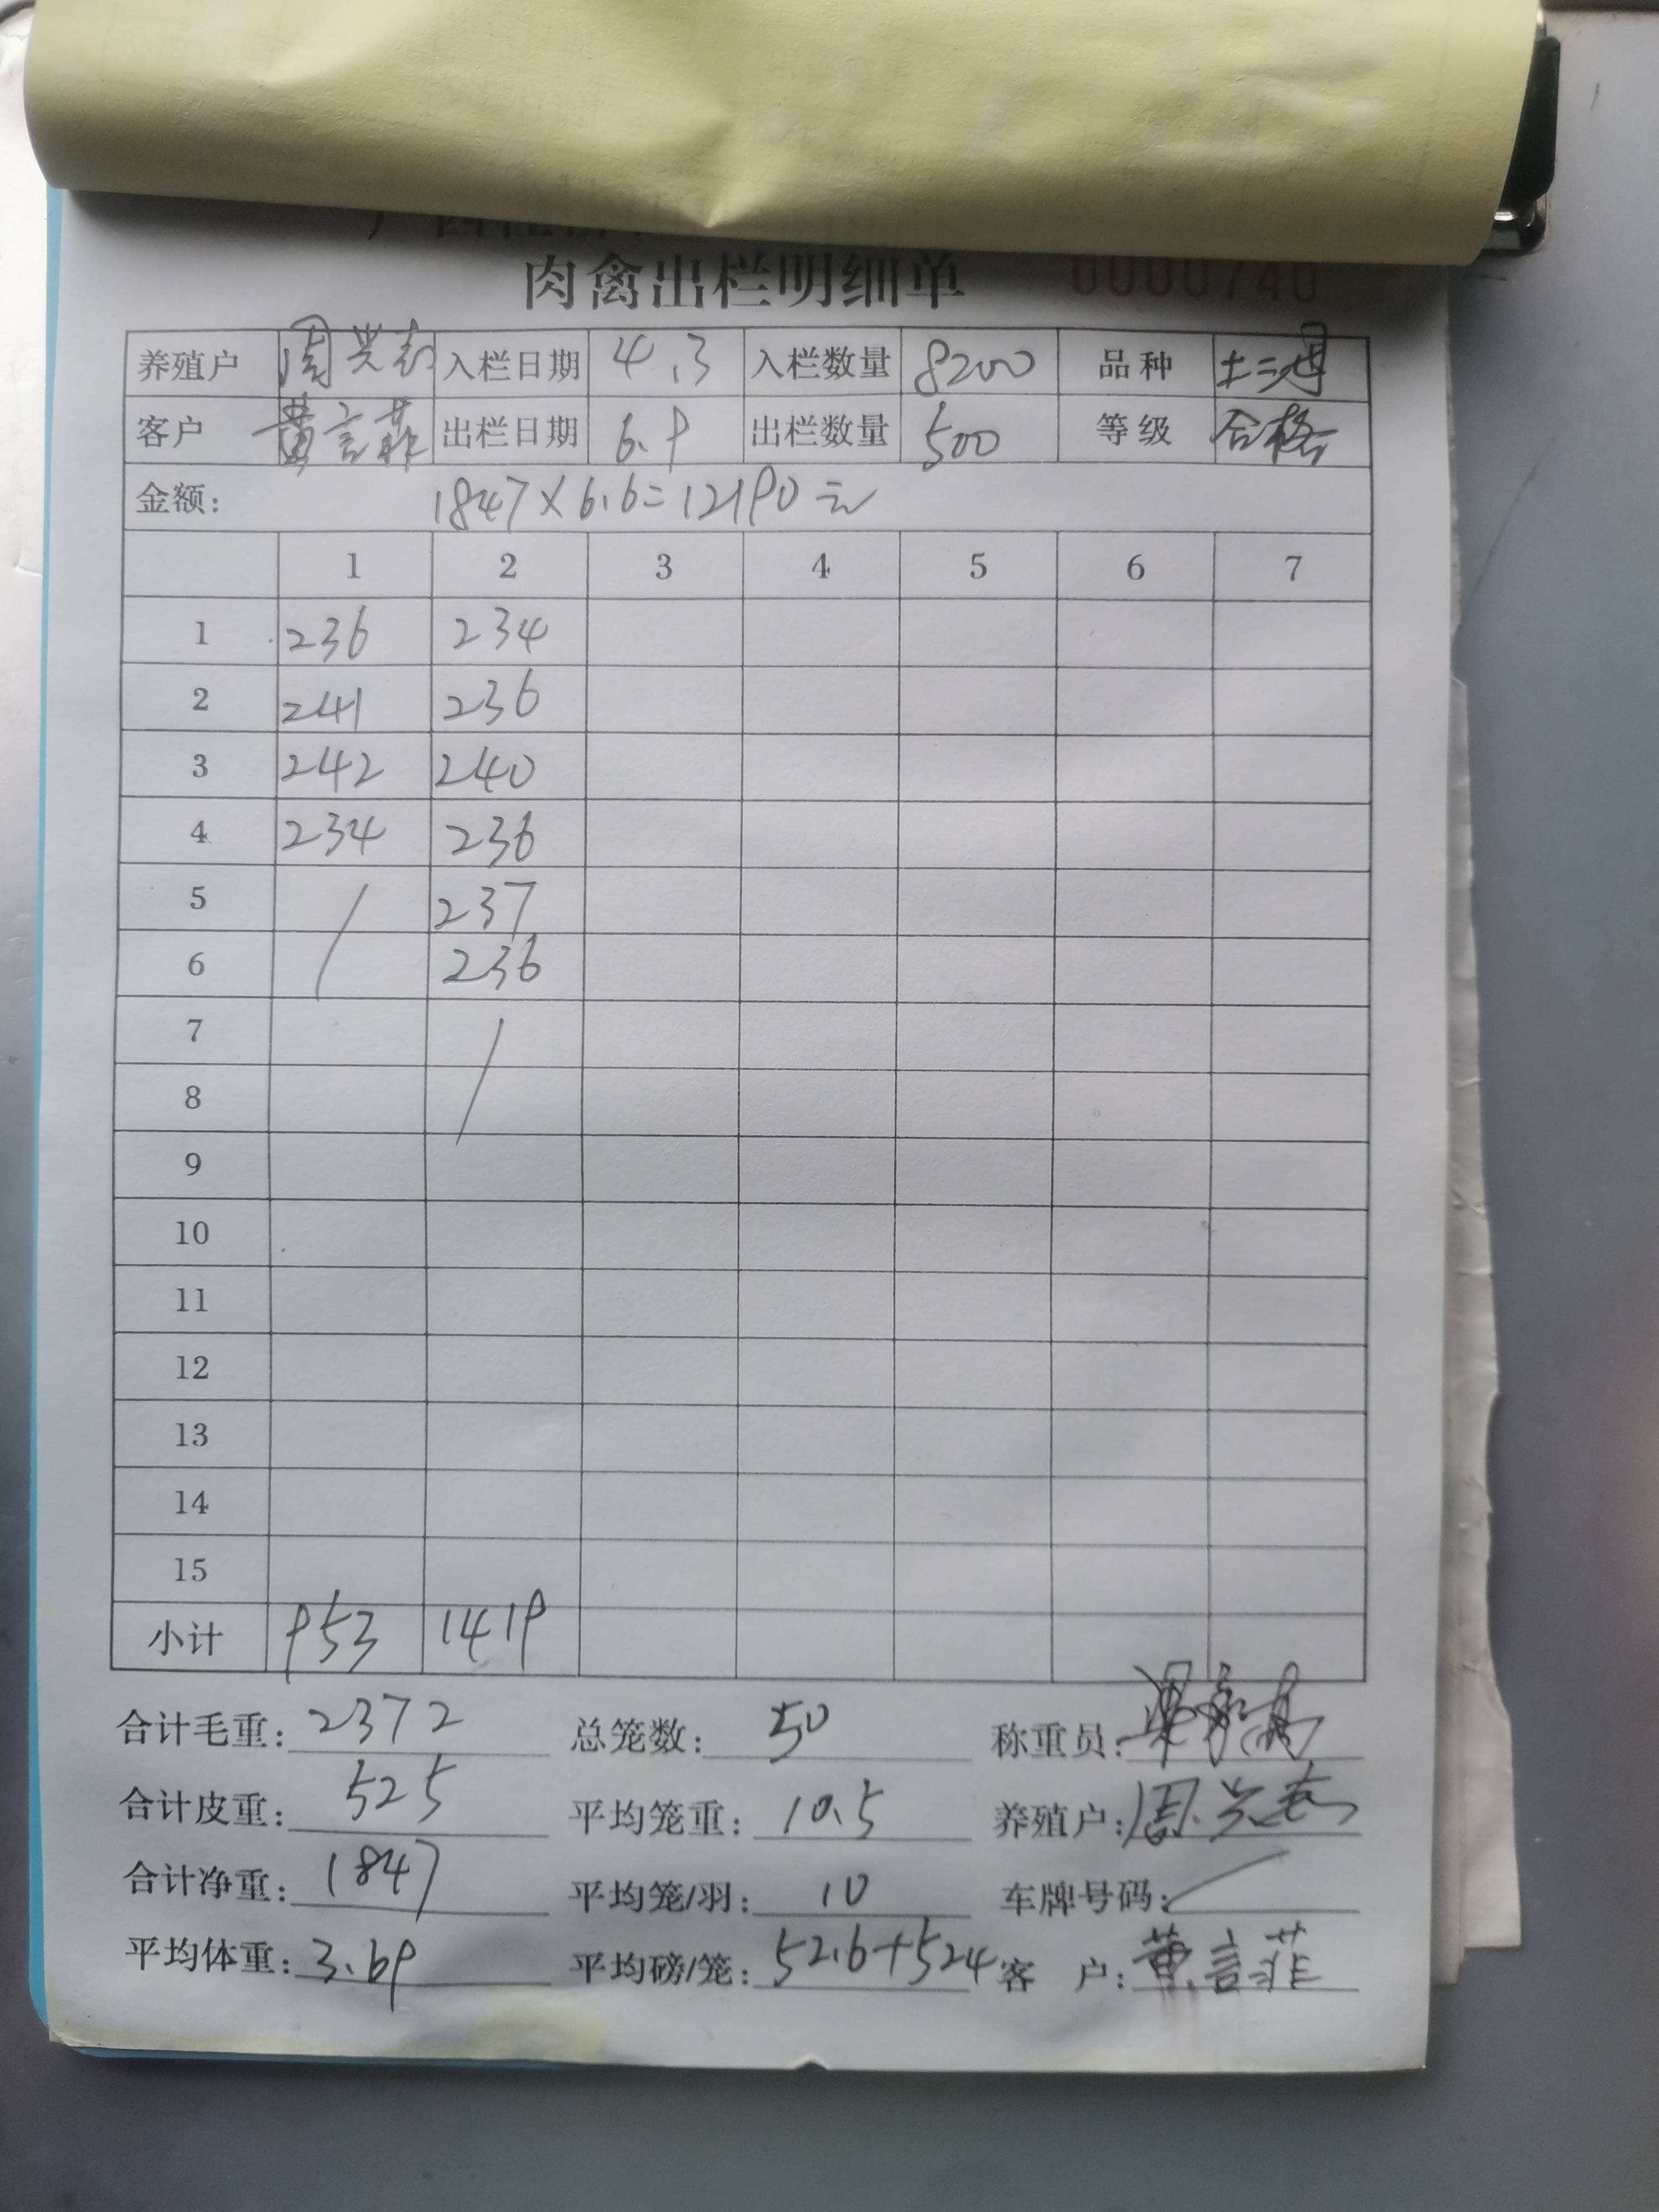 肉禽出栏明细单 0000740
养殖户 周兴 入栏日期 4.3 入栏数量 8200 品种 土三
客户 黄言菲 出栏日期 6.9 出栏数量 500 等级 合格
金额: 1847×6.6=12190元
1 2 3 4 5 6 7
1 236 234
2 241 236
3 242 240
4 234 236
5 / 237
6 236
7 /
8
9
10
11
12
13
14
15
小计 953 1419
合计毛重: 2372 总笼数: 50 称重员:
合计皮重: 525 平均笼重: 10.5 养殖户: 周兴
合计净重: 1847 平均笼/羽: 10 车牌号码: /
平均体重: 3.69 平均磅/笼: 52.6+524 客 户: 黄言菲